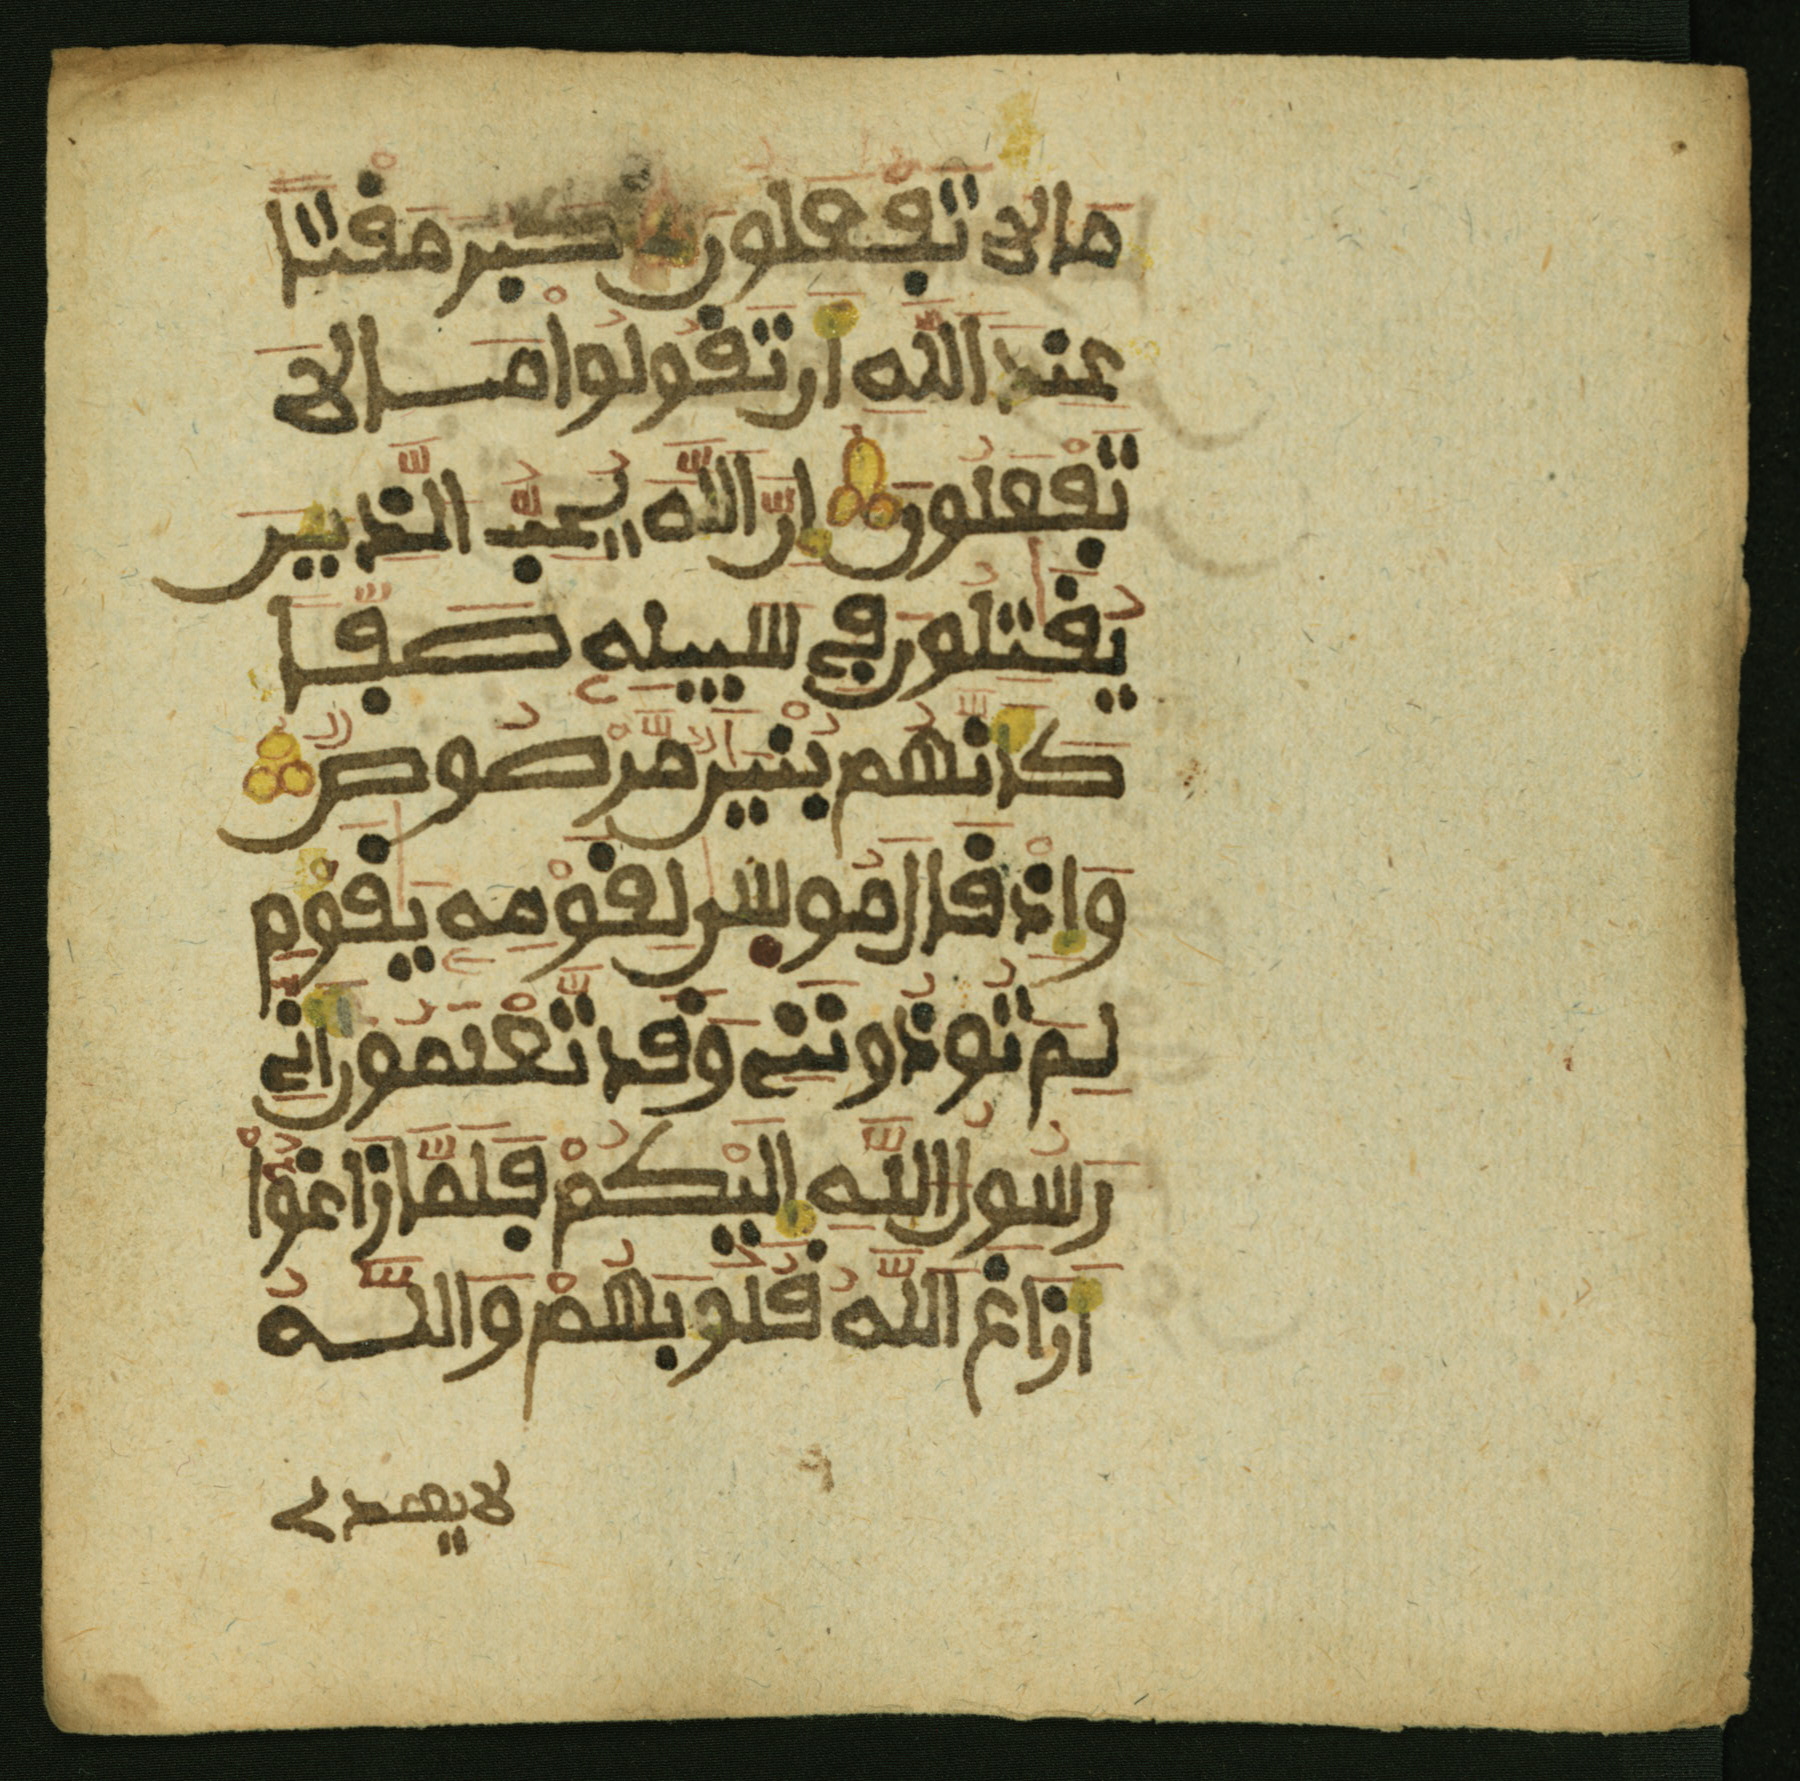 مَا لَا تَفْعَلُونَ كَبُرَ مَقْتًا
عِندَ اللَّهِ أَن تَقُولُواْ مَا لَا
تَفْعَلُونَ إِنَّ اللَّهَ يُحِبُّ الَّذِينَ
يُقَٰتِلُونَ فِي سَبِيلِهِ صَفًّا
كَأَنَّهُم بُنْيَٰنٌ مَّرْصُوصٌ
وَإِذْ قَالَ مُوسَىٰ لِقَوْمِهِ يَٰقَوْمِ
لِمَ تُوذُونَنِي وَقَد تَّعْلَمُونَ أَنِّي
رَسُولُ اللَّهِ إِلَيْكُمْ فَلَمَّا زَاغُواْ
أَزَاغَ اللَّهُ قُلُوبَهُمْ وَاللَّهُ
لا يهدي